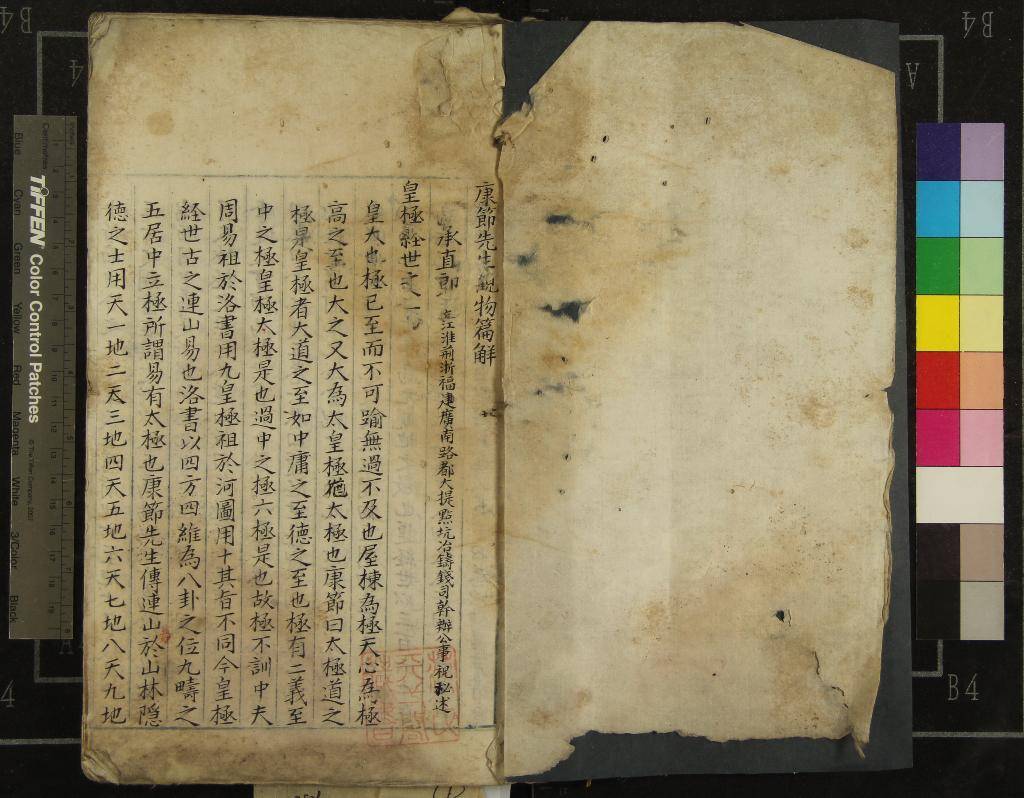 康節先生觀物篇解
承直郎 江淮荊浙福建廣南路都大提點坑冶鑄錢司幹辦公事祝秘述
皇極經世之一
皇大也極已至而不可踰無過不及也屋棟為極天心為極
高之至也大之又大為太皇極猶太極也康節曰太極道之
極是皇極者大道之至如中庸之至德之至也極有二義至
中之極皇極太極是也過中之極六極是也故極不訓中夫
周易祖於洛書用九皇極祖於河圖用十其旨不同今皇極
經世古之連山易也洛書以四方四維為八卦之位九疇之
五居中立極所謂易有太極也康節先生傳連山於山林隱
德之士用天一地二天三地四天五地六天七地八天九地
B4
B4
A
4
4
B4
TIFFEN Color Control Patches
© The Tiffen Company, 2007
Centimetres
Blue
Cyan
Green
Yellow
Red
Magenta
White
3/Color
Black